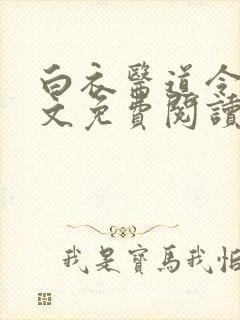 白衣醫道令
文免費閱讀
我是寶馬我怕